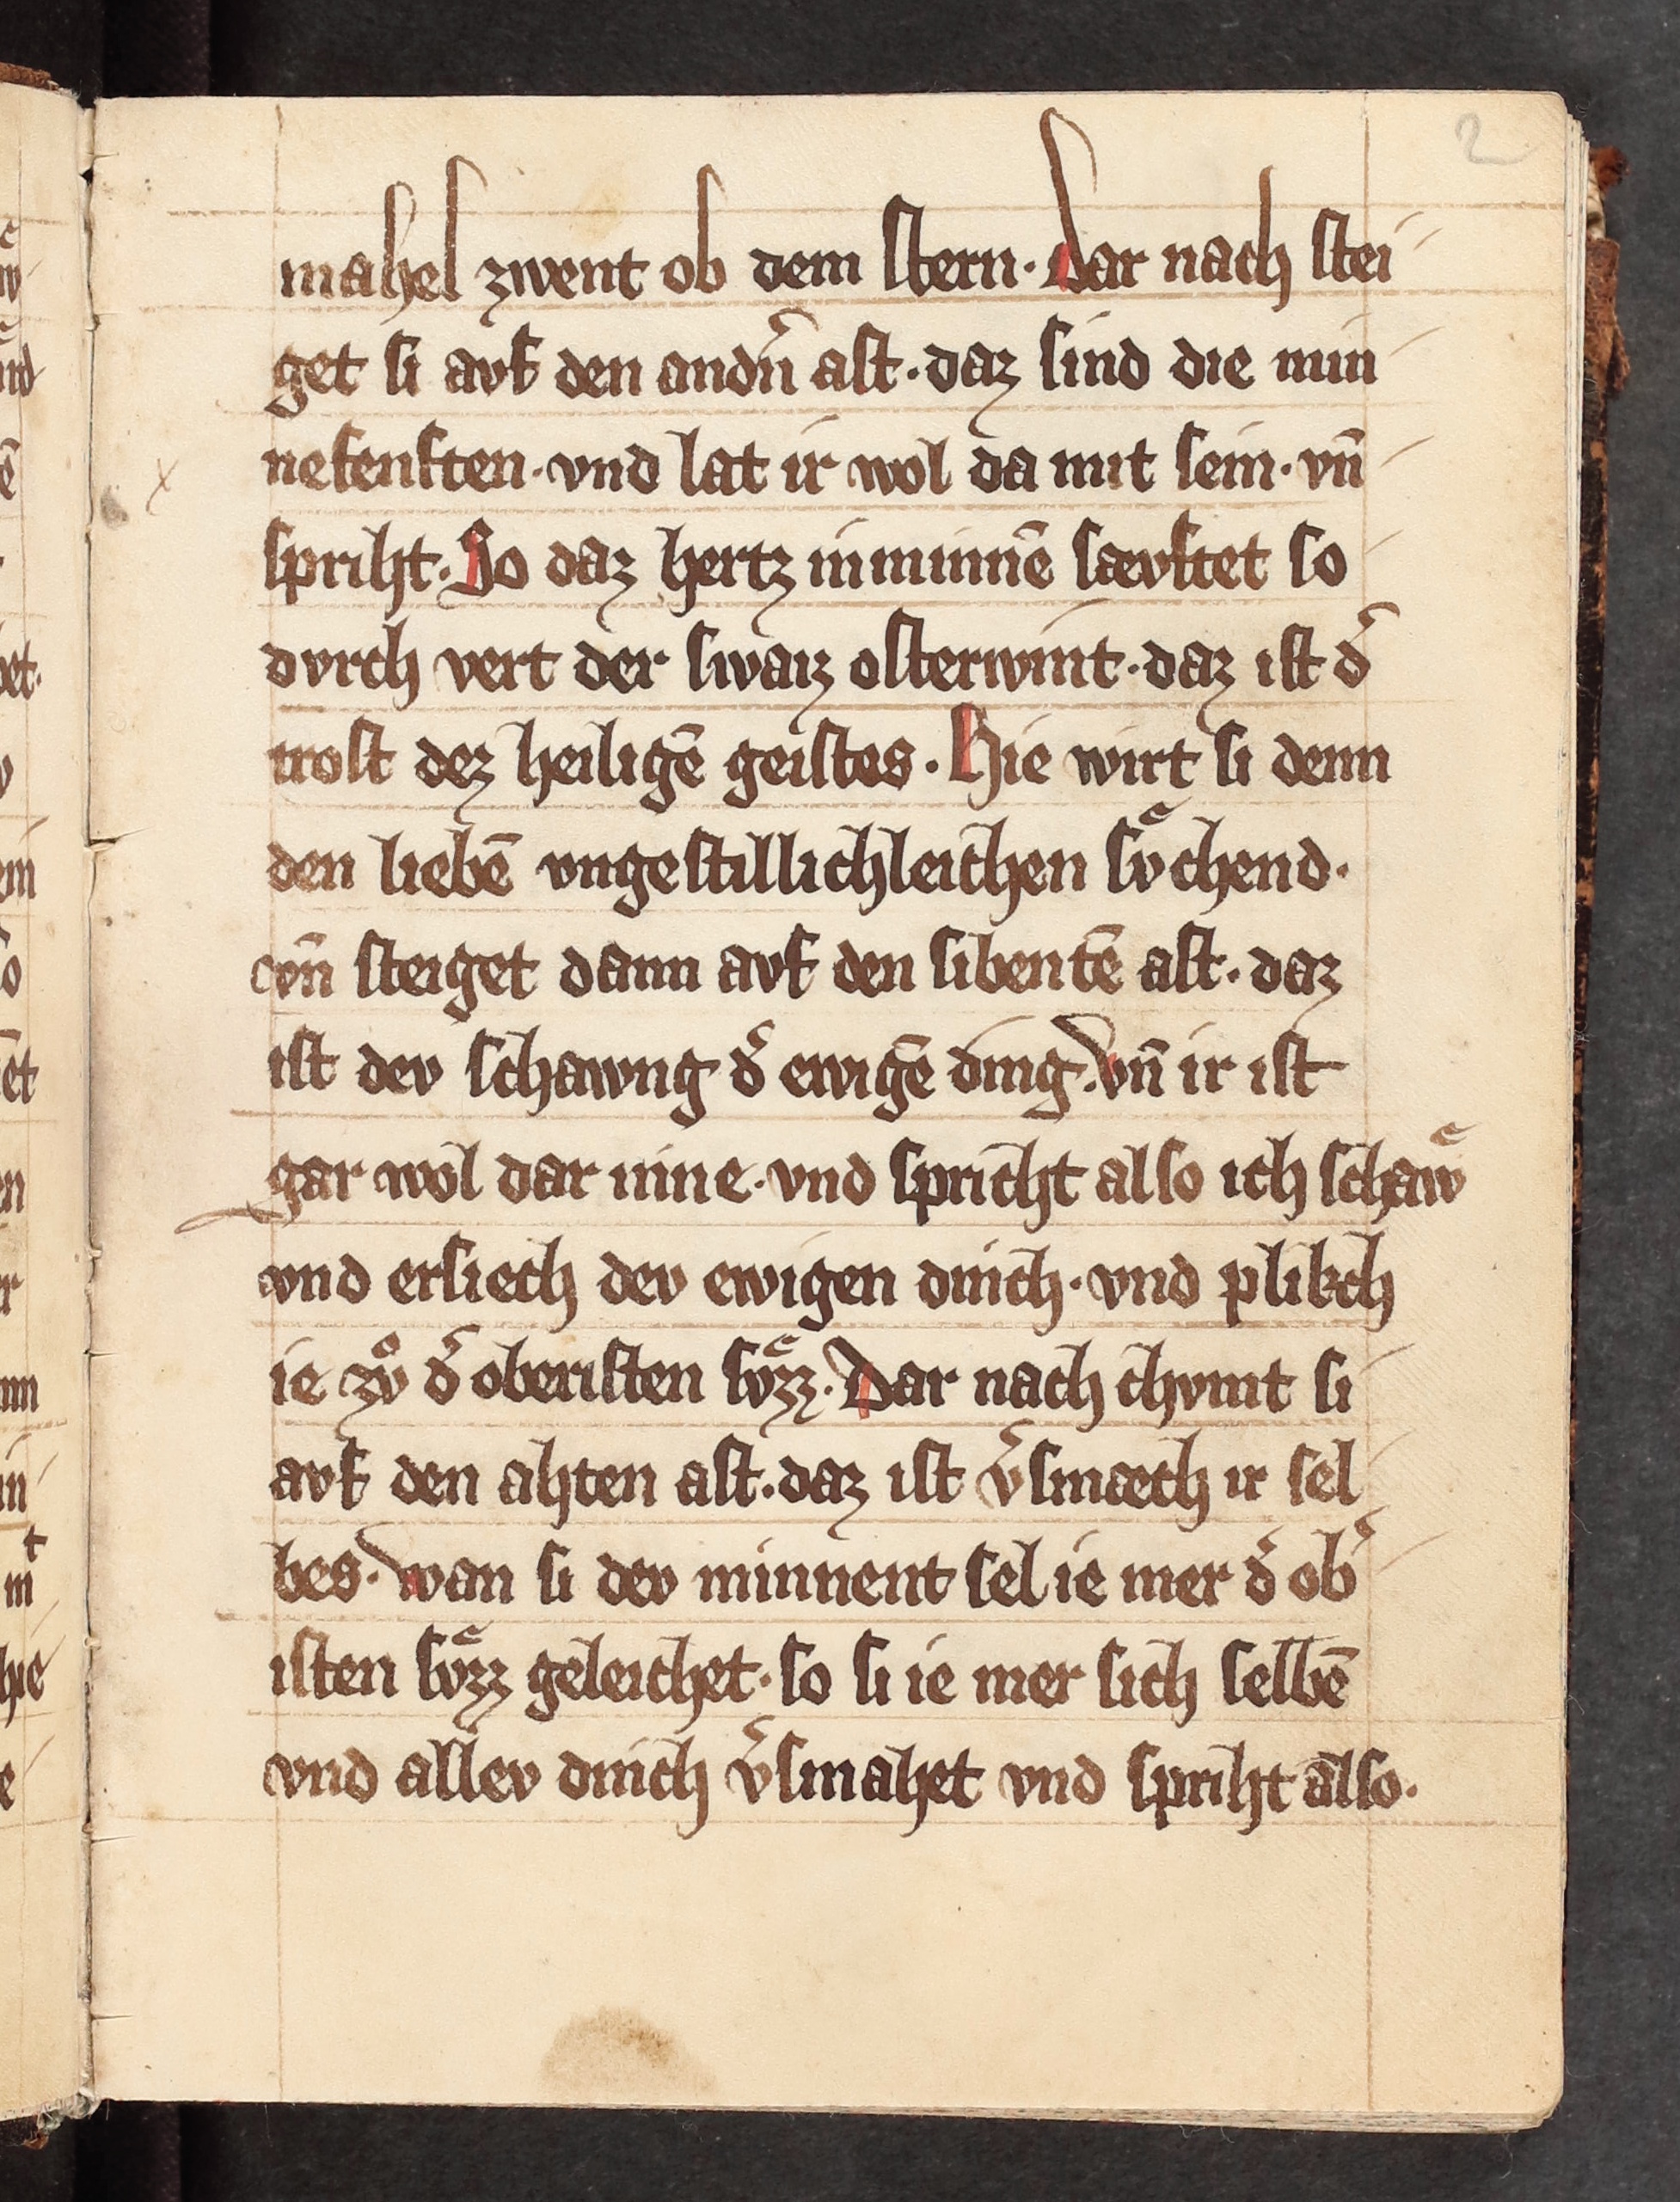 2
mahel zwent ob dem stern. Dar nach stei
get si avf den andn̄ ast. daz sind die min
nefenften. vnd lat ir wol da mit sein. vn̄
spriht. So daz hertz in minnē sævftet so
dvrch vert der swarz osterwint. daz ist d̕
trost dez heiligē geistes. Hie wirt si denn
den liebē vngestillichleichen svͤchend.
vn̄ steiget dann avf den sibentē ast. daz
ist dev schawng d̕ ewigē ding. vn̄ ir ist
gar wol dar inne. vnd spricht also ich schawͤ
vnd ersiech dev ewigen dinch. vnd plikch
ie zvͦ d̕ oberisten svͤzz. Dar nach chvmt si
avf den ahten ast. daz ist v̕smæch ir sel
bes. wan si dev minnent sel ie mer d̕ ob̕
isten svͤzz geleichet. so si ie mer sich selbē
vnd allev dinch v̕smahet vnd spriht also.